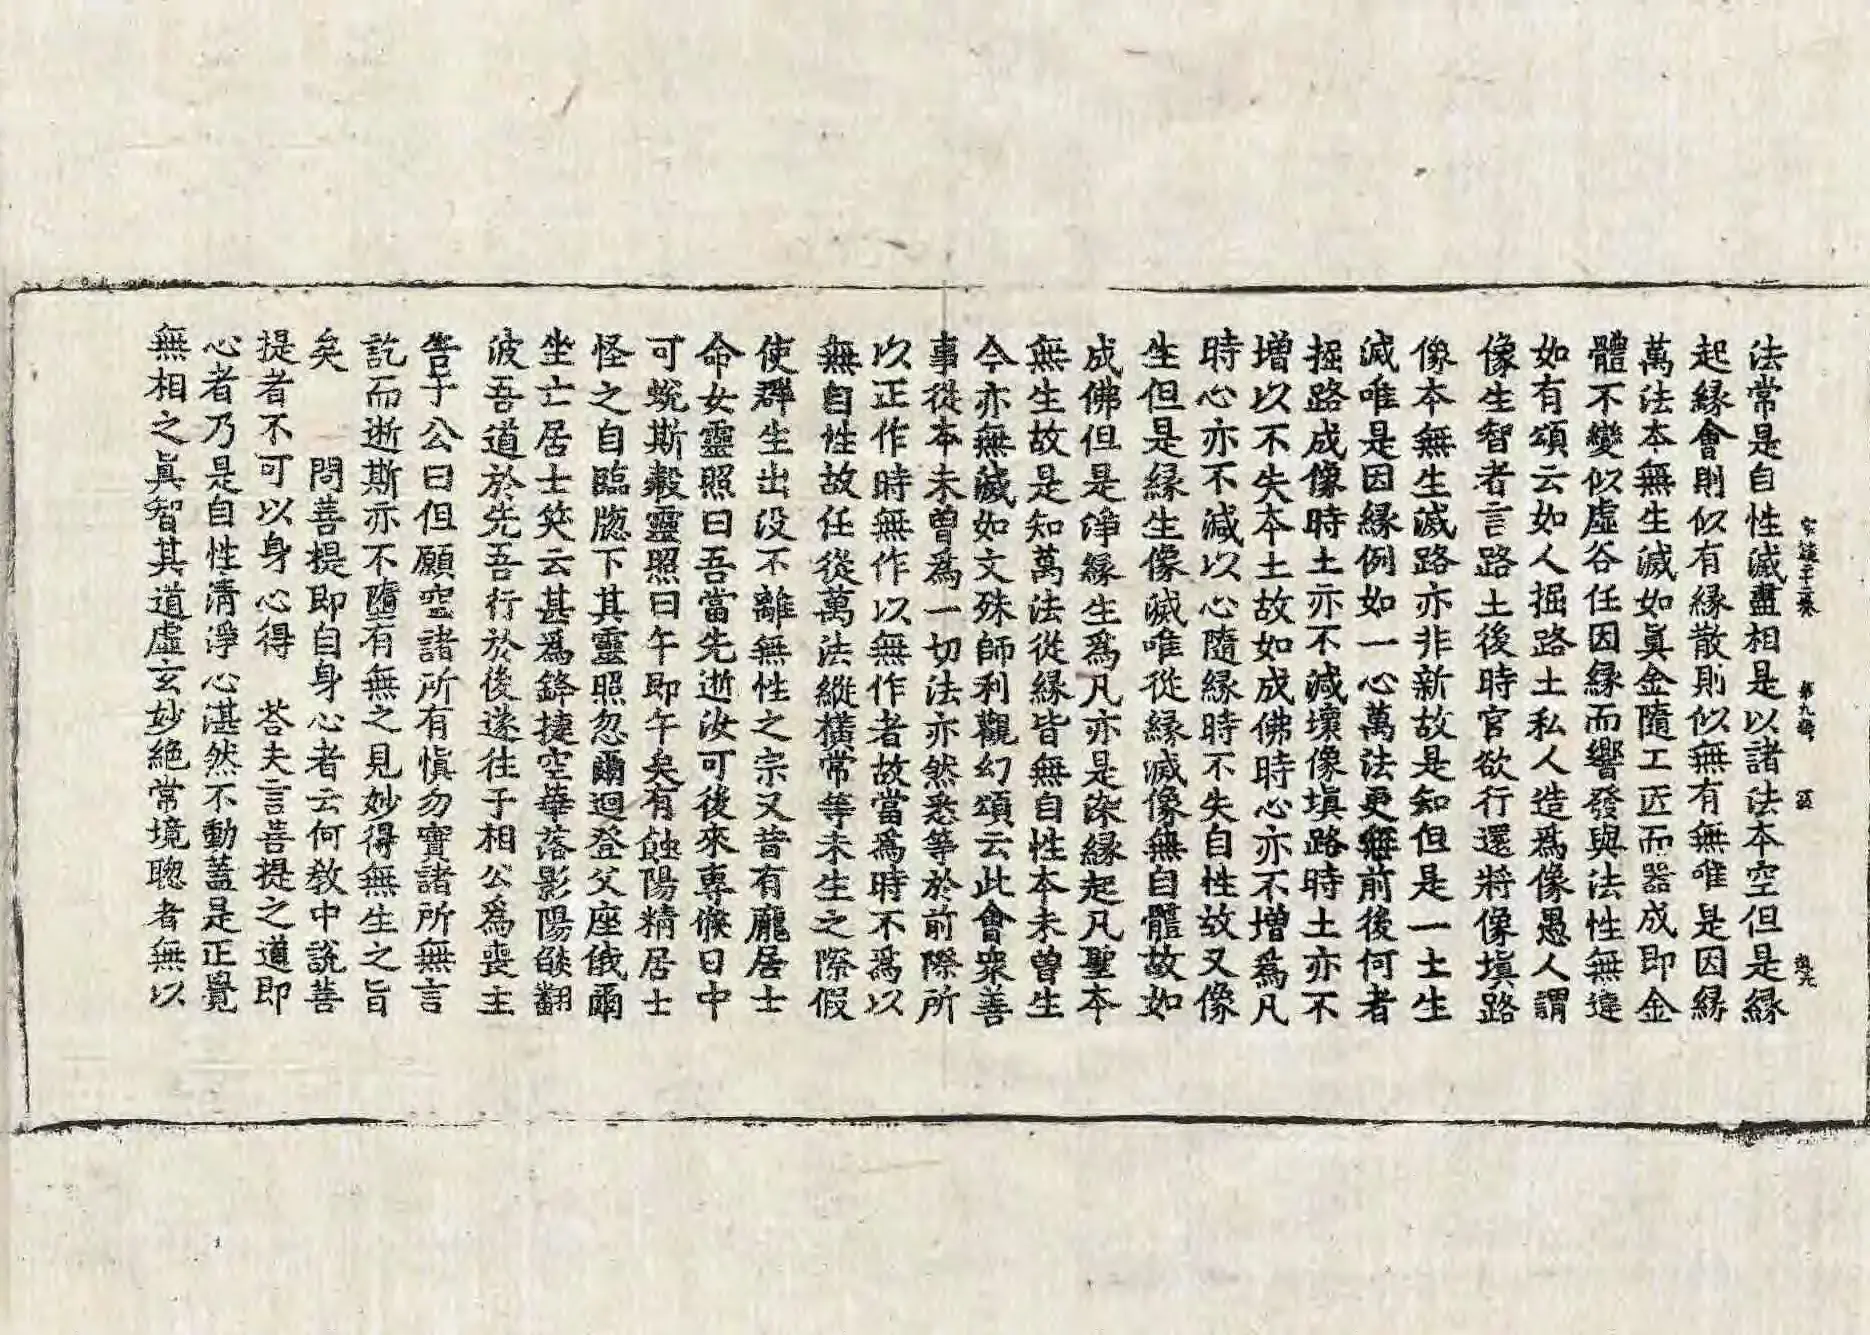 法常是自性滅盡相是以諸法本空但是緣
起緣會則似有緣散則似無有無唯是因緣
萬法本無生滅如眞金隨工匠而器成卽金
體不變似虛谷任因緣而響發與法性無違
如有頌云如人掘路土私人造爲像愚人謂
像生智者言路土後時官欲行還將像塡路
像本無生滅路亦非新故是知但是一土生
滅唯是因緣例如一心萬法更無前後何者
掘路成像時土亦不減壞像塡路時土亦不
增以不失本土故如成佛時心亦不增爲凡
時心亦不減以心隨緣時不失自性故又像
生但是緣生像滅唯從緣滅像無自體故如
成佛但是淨緣生爲凡亦是染緣起凡聖本
無生故是知萬法從緣皆無自性本未曾生
今亦無滅如文殊師利觀幻頌云此會衆善
事從本未曾爲一切法亦然悉等於前際所
以正作時無作以無作者故當爲時不爲以
無自性故任從萬法縱橫常等未生之際假
使群生出没不離無性之宗又昔有龐居士
命女靈照曰吾當先逝汝可後來專候日中
可蛻斯縠靈照曰午卽午矣有蝕陽精居士
怪之自臨牕下其靈照忽爾迴登父座俄爾
坐亡居士笑云甚爲鋒捷空華落影陽燄翻
波吾道於先吾行於後遂往于相公爲喪主
告于公曰但願空諸所有愼勿實諸所無言
訖而逝斯亦不墮有無之見妙得無生之旨
矣　問菩提卽自身心者云何敎中說菩
提者不可以身心得　荅夫言菩提之道卽
心者乃是自性淸淨心湛然不動蓋是正覺
無相之眞智其道虛玄妙絕常境聰者無以